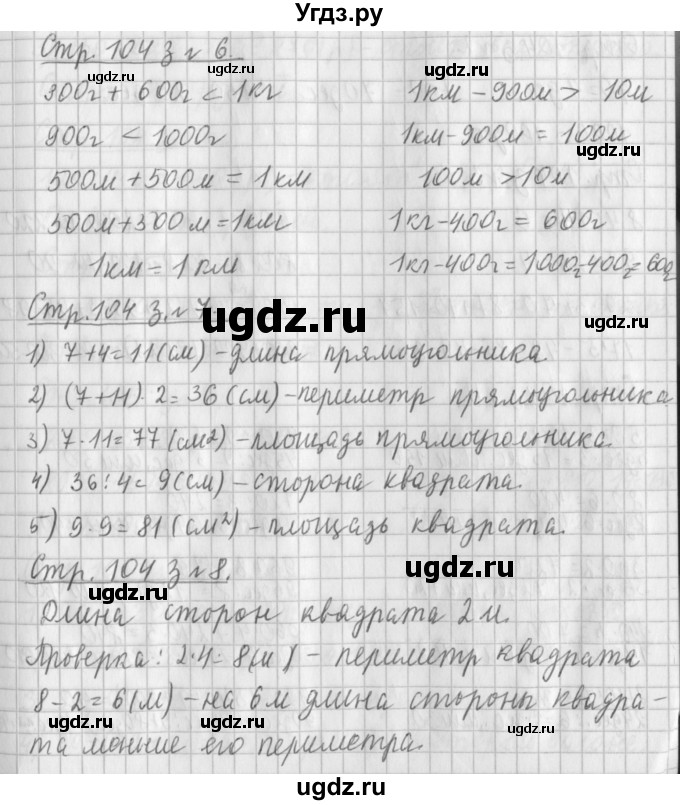 Угдз.ру
Стр. 104 з № 6.
300г + 600г < 1кг
900г < 1000г
500м + 500м = 1км
500м + 300м = 1км
1км = 1км
1км - 900м > 10м
1км - 900м = 100м
100м > 10м
1кг - 400г = 600г
1кг - 400г = 1000г - 400г = 600г
Стр. 104 з. № 7.
1) 7+4=11(см) - длина прямоугольника.
2) (7+11)·2=36(см) - периметр прямоугольника
3) 7·11=77(см²) - площадь прямоугольника.
4) 36:4=9(см) - сторона квадрата.
5) 9·9=81(см²) - площадь квадрата.
Стр. 104 з № 8.
Длина сторон квадрата 2 м.
Проверка: 2·4=8(м) - периметр квадрата
8-2=6(м) - на 6м длина стороны квадра-
та меньше его периметра.
ugdz.ru
ugdz.ru
ugdz.ru
ugdz.ru
ugdz.ru
ugdz.ru
ugdz.ru
ugdz.ru
ugdz.ru
ugdz.ru
ugdz.ru
ugdz.ru